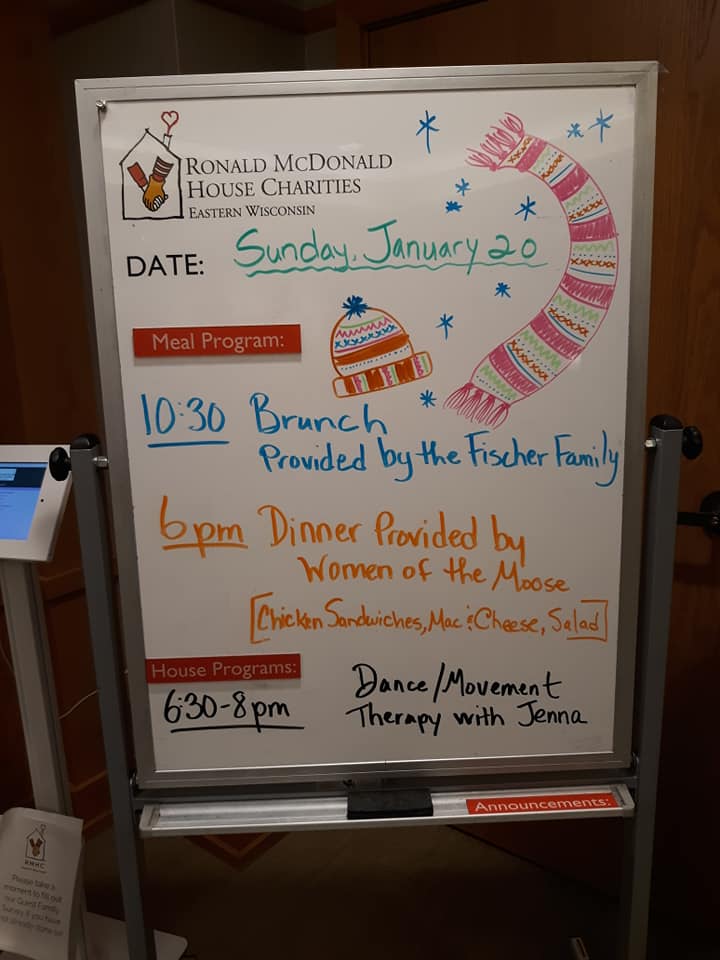 RONALD MCDONALD
HOUSE CHARITIES
EASTERN WISCONSIN
DATE: Sunday, January 20
Meal Program:
10:30 Brunch
Provided by the Fischer Family
6pm Dinner Provided by
Women of the Moose
[Chicken Sandwiches, Mac & Cheese, Salad]
House Programs:
6:30-8pm Dance/Movement
Therapy with Jenna
Announcements:
RMHC
Please take a
moment to fill out
our Guest Family
Survey if you have
not already done so!